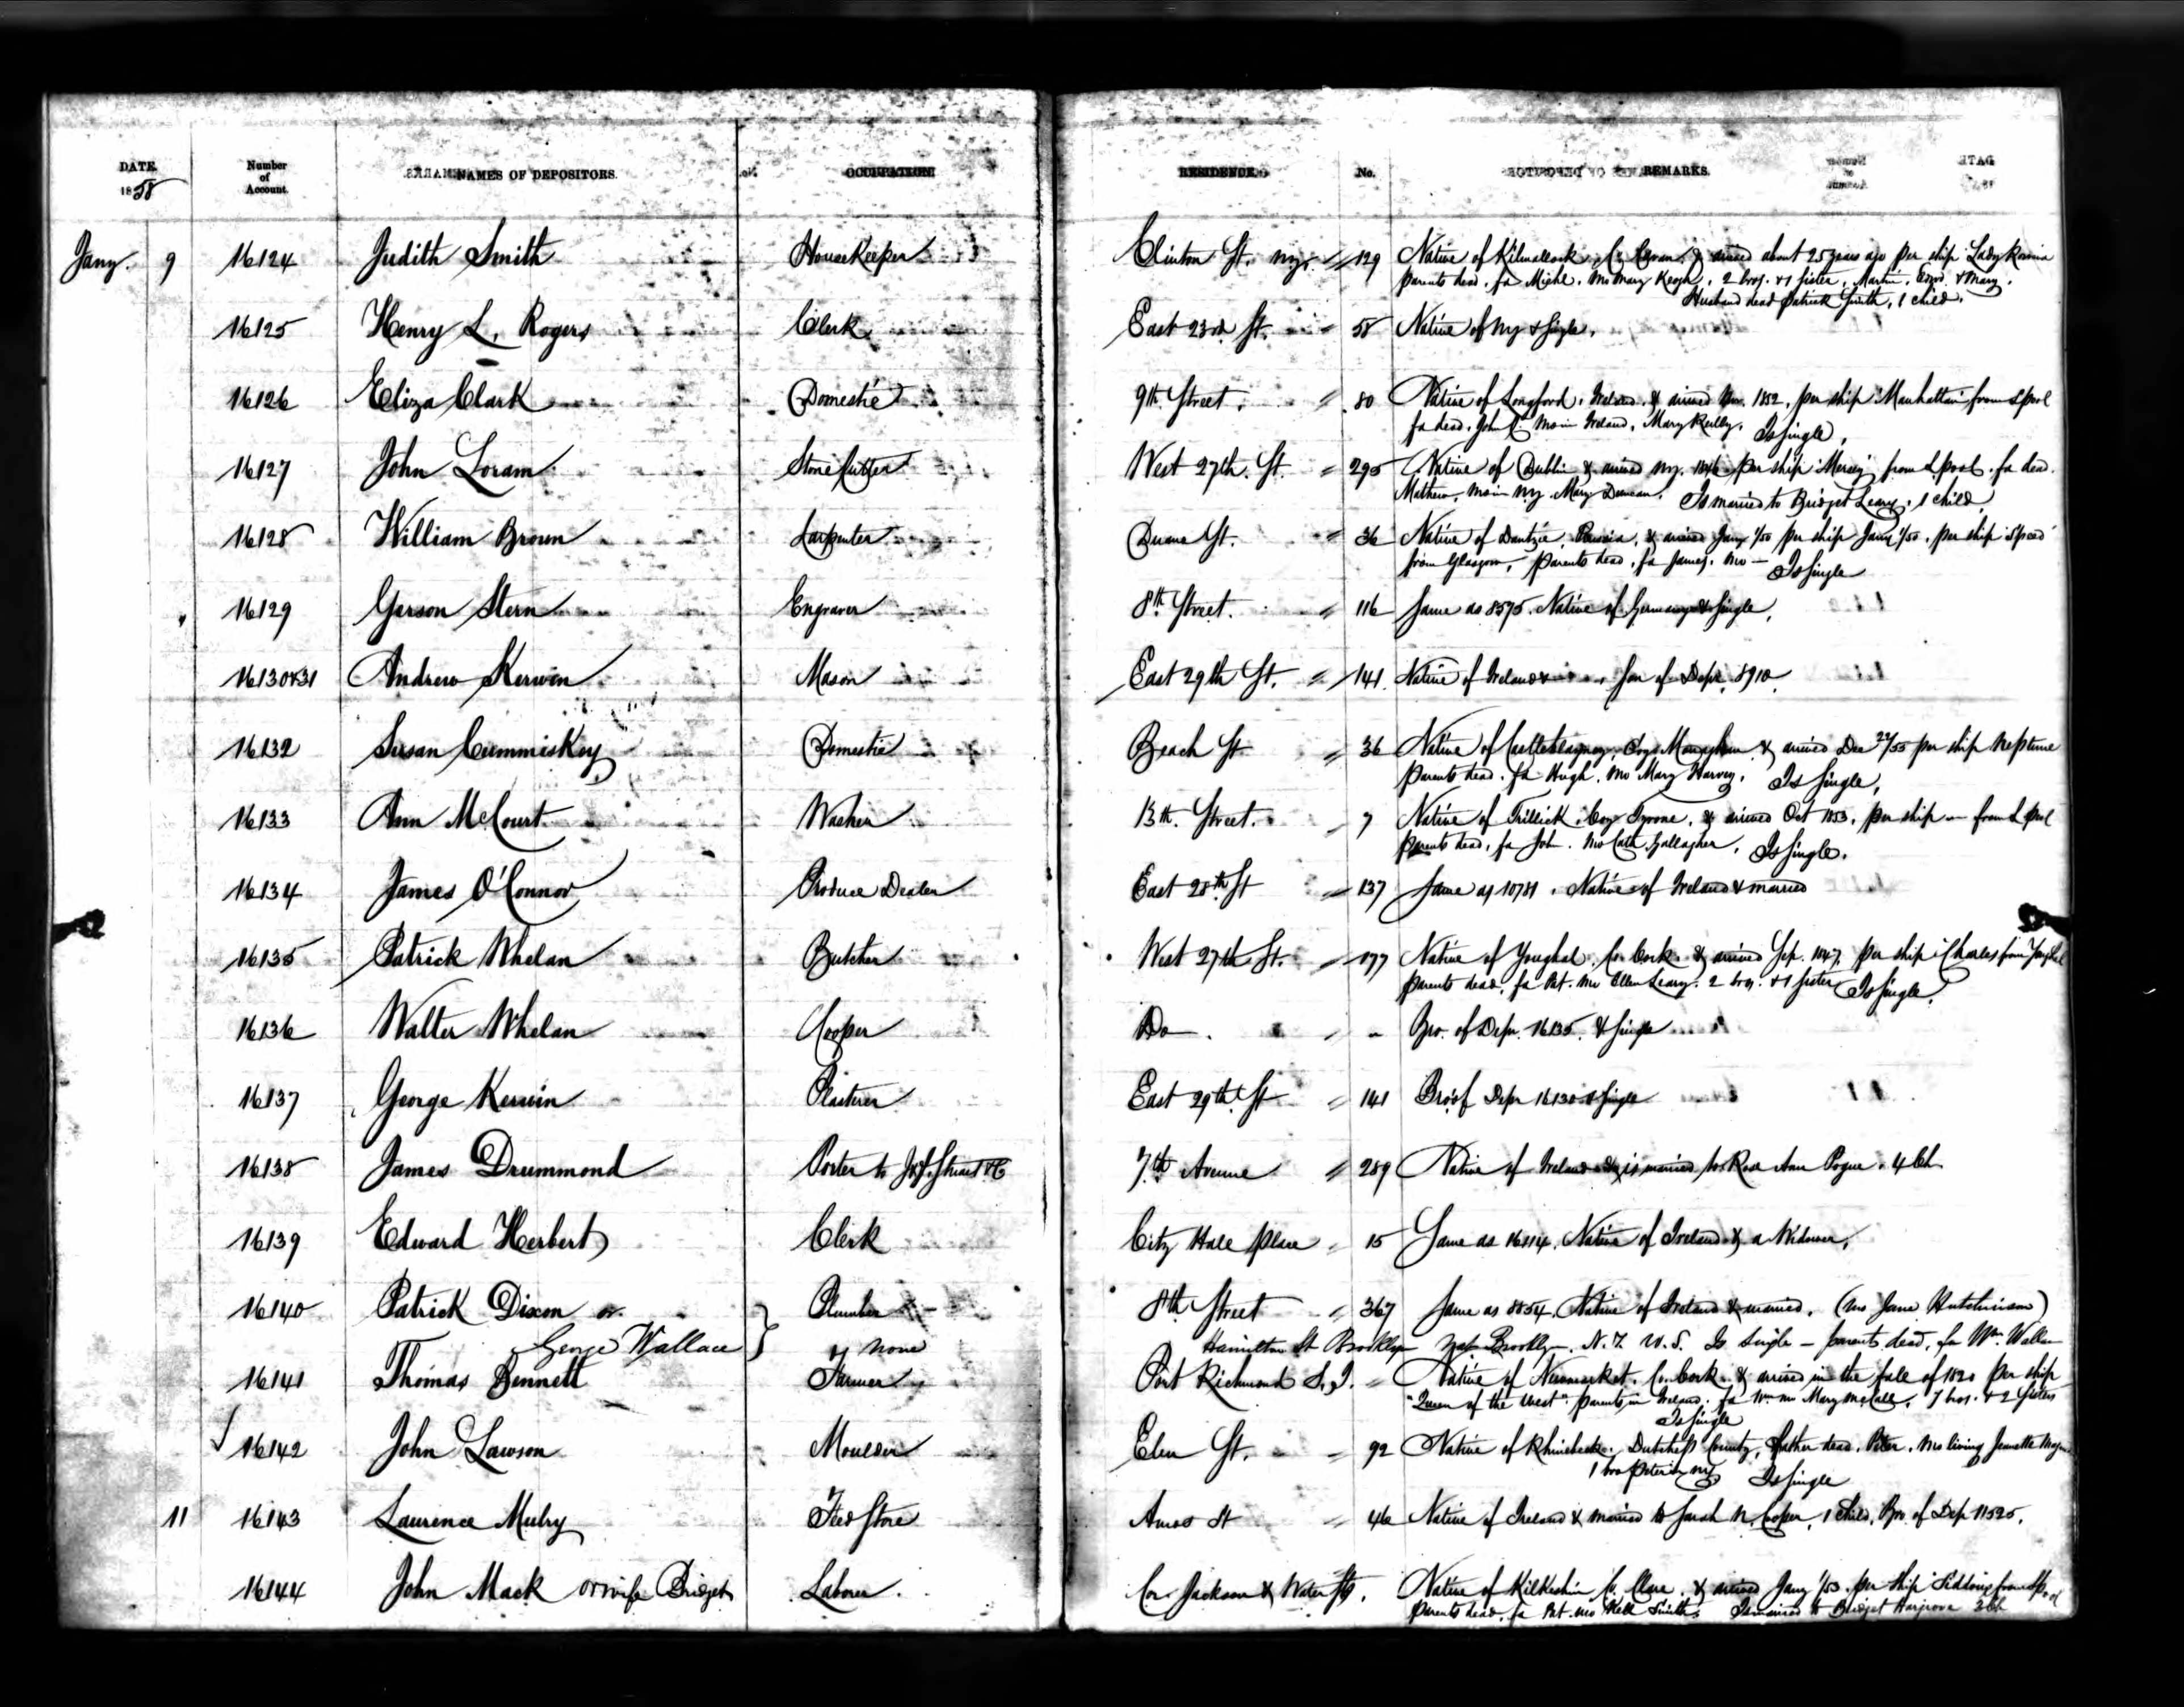 DATE. Number of Account. NAMES OF DEPOSITORS. OCCUPATION RESIDENCE No. REMARKS.
1858
Jany. 9 16124 Judith Smith HouseKeeper Clinton St. NY. " 129 Native of Kilmallock, Co. Cavan & arrived about 25 years ago per ship Lady
parents dead. fa Michl. Mo Mary Keogh. 2 bros. & 1 sister, Martin, Edwd. & Mary.
Husband dead Patrick Smith, 1 child.
16125 Henry L. Rogers Clerk East 23rd St. " 58 Native of NY & single.
16126 Eliza Clark Domestic 9th Street. " 80 Native of Longford, Ireland, & arrived 1852, per ship Manhattan from Lpool
fa dead, John C. Mo in Ireland, Mary Reilly. Is single.
16127 John Loram Stone Cutter West 27th. St. " 295 Native of Dublin & arrived NY. 1846 per ship Mersey from Lpool. fa dead.
Mathew, Mo in NY Mary Duncan. Is married to Bridget Leary. 1 child.
16128 William Brown Carpenter Duane St. " 36 Native of Dantzic, Prussia, & arrived Jany 1/50 per ship Jany 1/50. per ship Speed
from Glasgow, parents dead, fa James. Mo — Is single
16129 Gerson Stern Engraver 8th Street. " 116 Same as 8575. Native of Germany & single.
16130&31 Andrew Kerwin Mason East 29th St. " 141 Native of Ireland & Son of Depr. 8910.
16132 Susan Cummiskey Domestic Beach St " 36 Native of Castleblayney, Coy Monaghan & arrived Dec 24/55 per ship Neptune
parents dead. fa Hugh. Mo Mary Harvey. Is single.
16133 Ann McCourt Washer 13th. Street. " 7 Native of Trillick, Coy Tyrone, & arrived Oct 1853. per ship — from Lpool
parents dead, fa John. Mo Cath. Gallagher. Is single.
16134 James O'Connor Produce Dealer East 28th St " 137 Same as 10781. Native of Ireland & married
16135 Patrick Whelan Butcher West 27th St. " 177 Native of Youghal, Co. Cork & arrived Sep. 1847, per ship Charles from Youghal
parents dead, fa Pat. Mo Ellen Leary. 2 bros. & 1 sister Is single.
16136 Walter Whelan Cooper Do " - Bro. of Depr. 16135. & single
16137 George Kerwin Plasterer East 29th St " 141 Bro of Depr 16130 & single
16138 James Drummond Porter to J&J. Stuart & Co 7th Avenue " 289 Native of Ireland & is married to Rose Ann Pogue. 4 Ch.
16139 Edward Herbert Clerk City Hall Place " 15 Same as 16114. Native of Ireland & a Widower.
16140 Patrick Dixon or Plumber 8th Street " 367 Same as 8854. Native of Ireland & married. (Mo Jane Hutchinson)
George Wallace } none Hamilton St Brooklyn Nat Brooklyn. N.Y. U.S. Is single — parents dead, fa Wm. Wallace
16141 Thomas Bennett Farmer Port Richmond S.I. " Native of Newmarket. Co. Cork. & arrived in the fall of 1820 per ship
"Queen of the West" parents in Ireland. fa Wm. Mo Mary McCall. 7 bros. & 2 sisters
Is single
16142 John Lawson Moulder Elm St. " 92 Native of Rhinebeck, Dutchess County, father dead. Peter. Mo living Jeanette
1 bro Peter in NY Is single
11 16143 Laurence Mulry Feed Store Amos St " 46 Native of Ireland & married to Sarah N. Cooper, 1 child, Bro. of Dep 11525.
16144 John Mack or wife Bridget Laborer Cor Jackson & Water Sts. Native of Kilkishin Co. Clare. & arrived Jany 1/53. per ship from Lpool
parents dead, fa Pat. Mo Smith. Is married to Bridget Hargrove 3 Ch